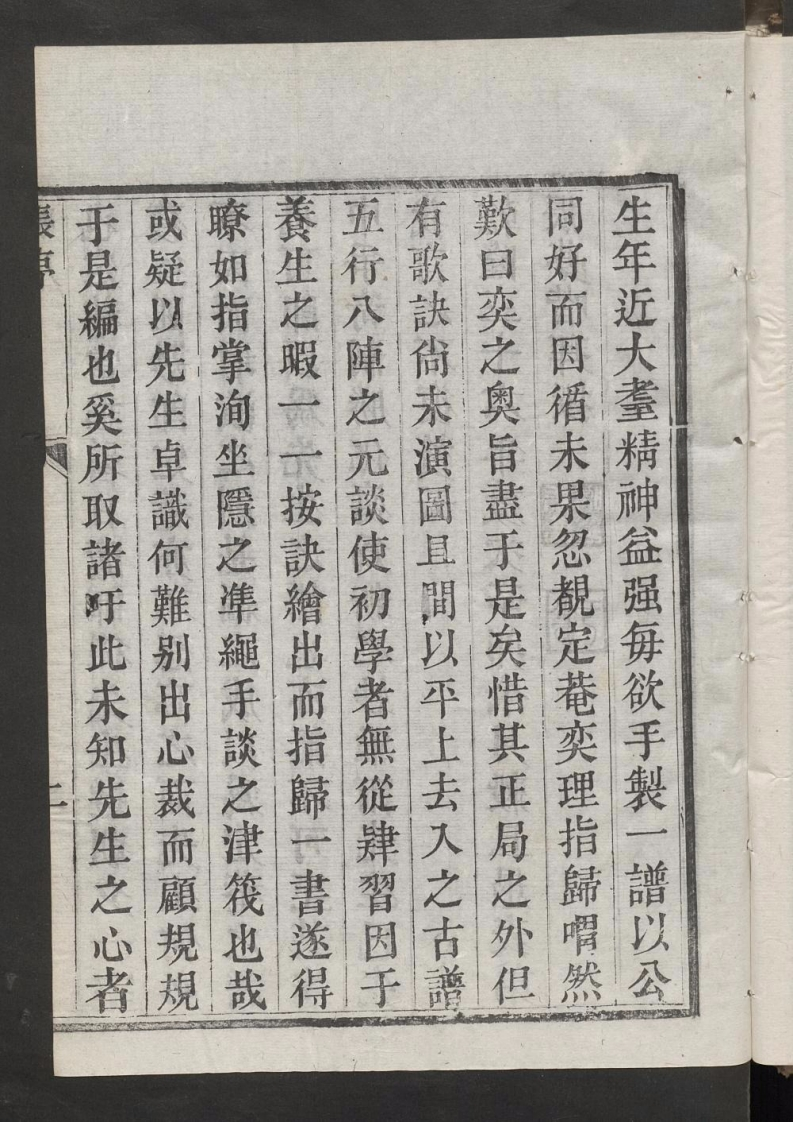 生年近大耋精神益强每欲手製一譜以公
同好而因循未果忽覩定菴奕理指歸喟然
歎曰奕之奧旨盡于是矣惜其正局之外但
有歌訣尙未演圖且間以平上去入之古譜
五行八陣之元談使初學者無從肄習因于
養生之暇一一按訣繪出而指歸一書遂得
瞭如指掌洵坐隱之準繩手談之津筏也哉
或疑以先生卓識何難別出心裁而顧規規
于是編也奚所取諸吁此未知先生之心者
二